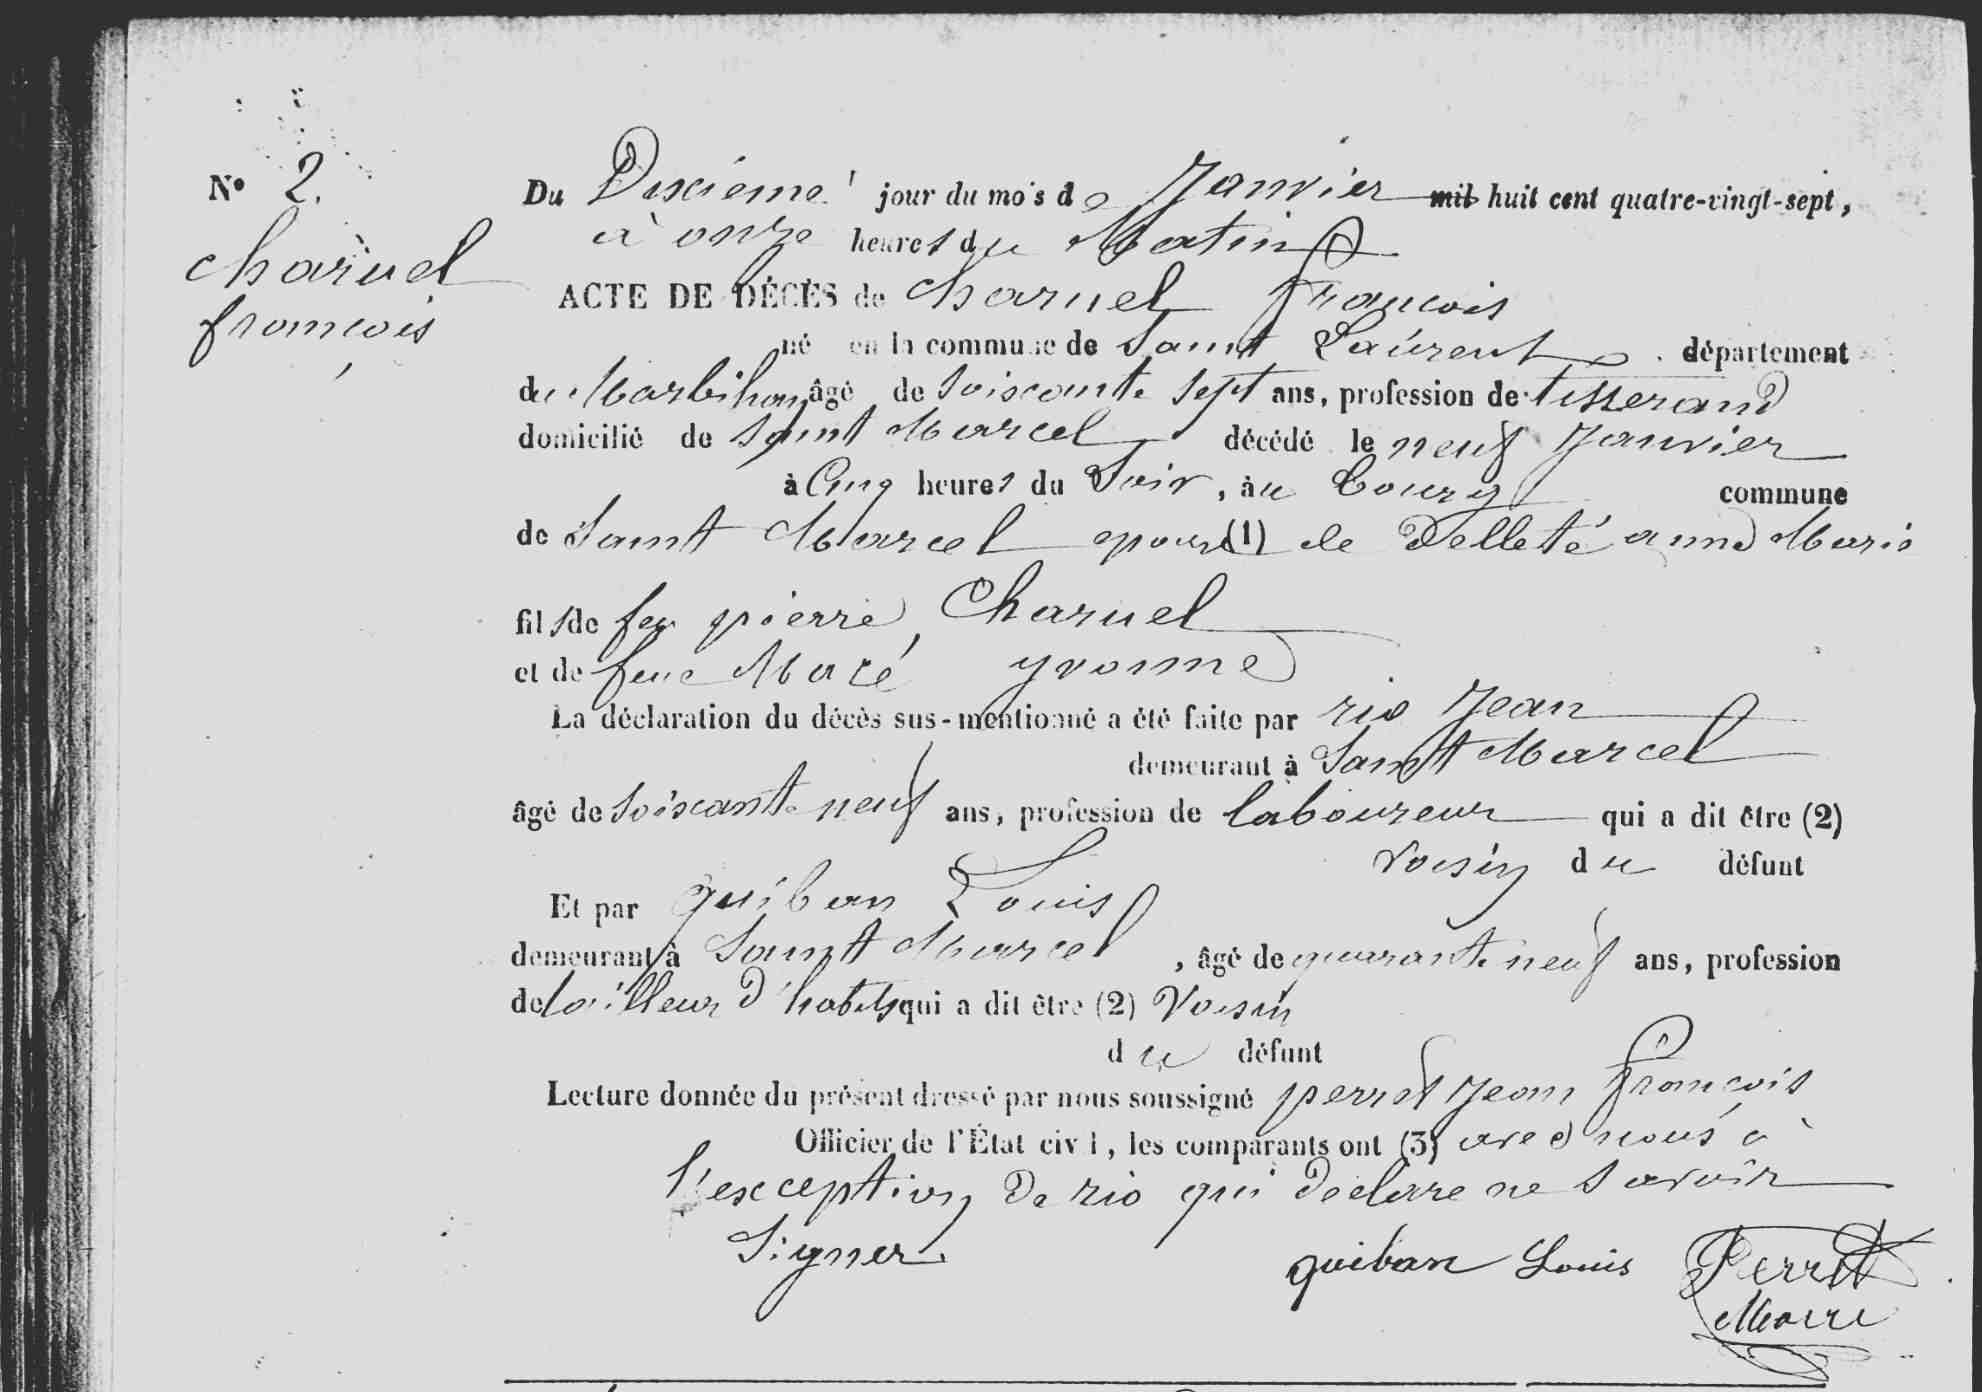 N° 2.
Charuel
françois
Du Dixième jour du mois de Janvier mil huit cent quatre-vingt-sept,
à onze heures du Matin
ACTE DE DÉCÈS de Charuel françois
né en la commune de Saint Laurent département
du Morbihan âgé de soixante sept ans, profession de tisserand
domicilié de Saint Marcel décédé le neuf Janvier
à Cinq heures du Soir, au bourg commune
de Saint Marcel époux (1) de Delleté anne Marie
fils de feu pierre Charuel
et de feue Macé yvonne
La déclaration du décès sus-mentionné a été faite par rio Jean
demeurant à Saint Marcel
âgé de soixante neuf ans, profession de laboureur qui a dit être (2)
voisin du défunt
Et par quiban Louis
demeurant à Saint Marcel, âgé de quarante neuf ans, profession
de tailleur d'habits qui a dit être (2) Voisin
du défunt
Lecture donnée du présent dressé par nous soussigné perret Jean françois
Officier de l'État civil, les comparants ont (3) avec nous à
l'exception de rio qui déclare ne savoir
Signer
quiban Louis Perret
Maire